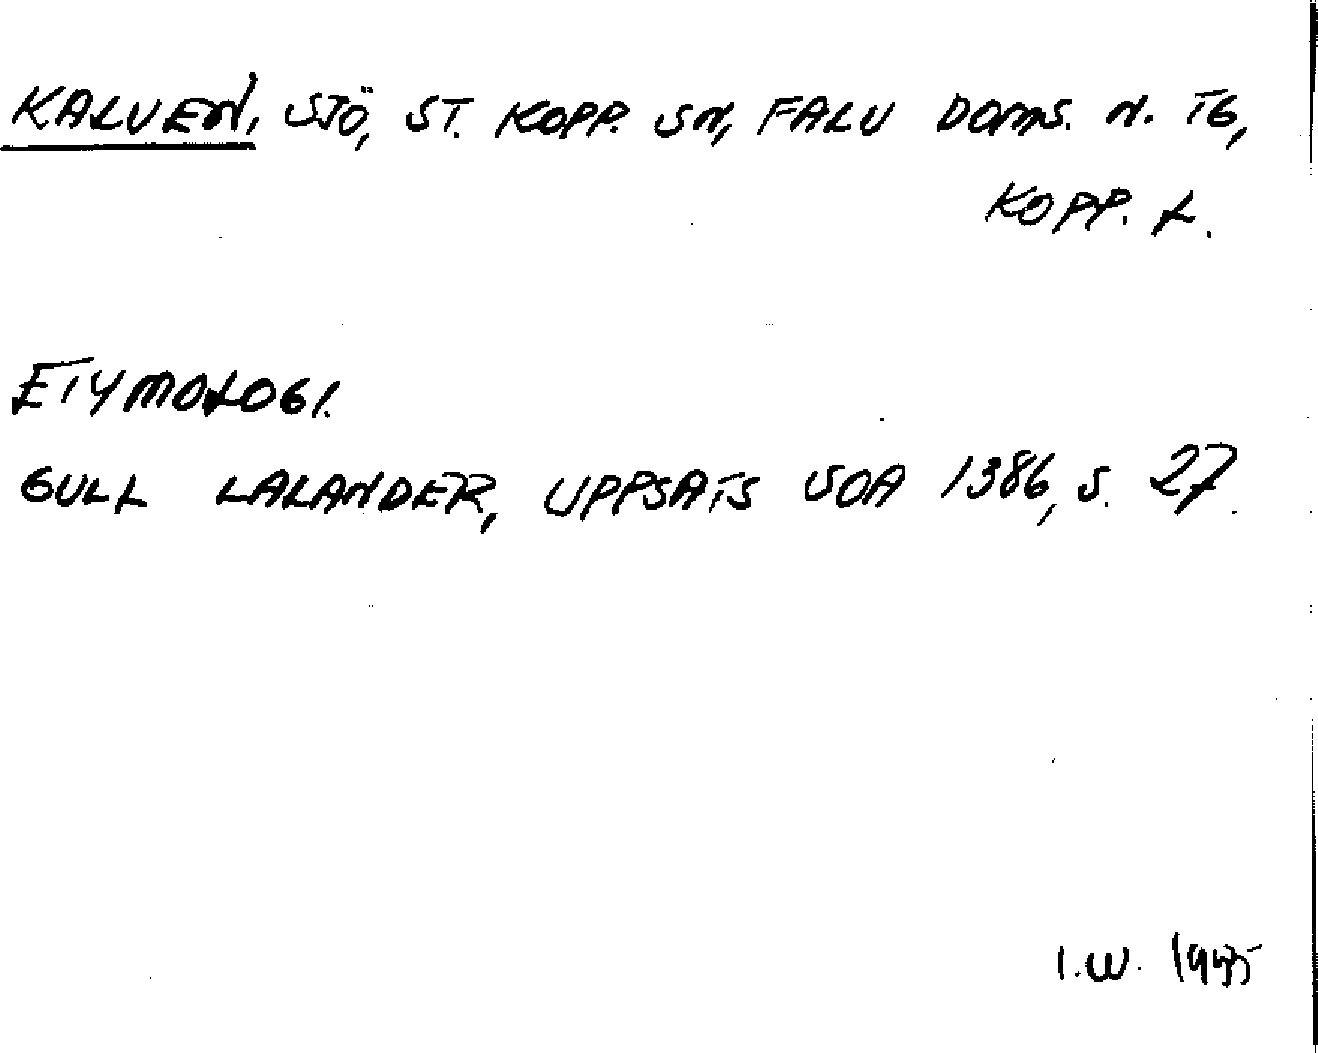 KALVEN, SJÖ, ST. KOPP. SN, FALU DOMS. N. TG,
KOPP. L.
ETYMOLOGI.
GULL LALANDER, UPPSATS SOA 1386, S. 27.
I.W.